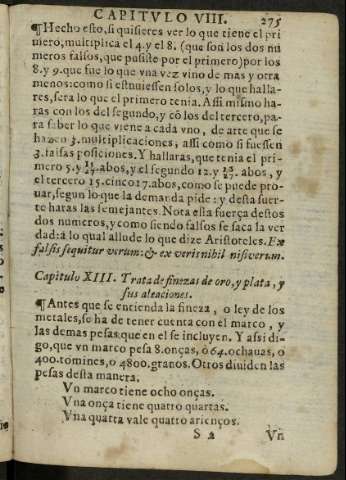 CAPITVLO VIII. 275
¶Hecho esto, si quisieres ver lo que tiene el pri
mero, multiplica el 4. y el 8. (que son los dos nu
meros falsos, que pusiste por el primero) por los
8. y 9. que fue lo que vna vez vino de mas y otra
menos: como si estuuiessen solos, y lo que halla-
res, sera lo que el primero tenia. Assi mismo ha-
ras con los del segundo, y cõ los del tercero, pa-
ra saber lo que viene a cada vno, de arte que se
hazen 3. multiplicaciones, assi como si fuessen
3. falsas posiciones. Y hallaras, que tenia el pri-
mero 5. y abos, y el segundo 12. y abos, y
el tercero 15. cinco 17. abos, como se puede pro-
uar, segun lo que la demanda pide: y desta suer-
te haras las semejantes. Nota esta fuerça destos
dos numeros, y como siendo falsos se saca la ver
dad: à lo qual allude lo que dize Aristoteles. Ex
falsis sequitur verum: & ex veris nihil nisi verum.
Capitulo XIII. Trata de finezas de oro, y plata, y
sus aleaciones.
¶Antes que se entienda la fineza, o ley de los
metales, se ha de tener cuenta con el marco, y
las demas pesas que en el se incluyen. Y assi di-
go, que vn marco pesa 8. onças, ò 64. ochauas, o
400. tomines, o 4800. granos. Otros diuiden las
pesas desta manera.
Vn marco tiene ocho onças.
Vna onça tiene quatro quartas.
Vna quarta vale quatro arienços.
S 2 Vn